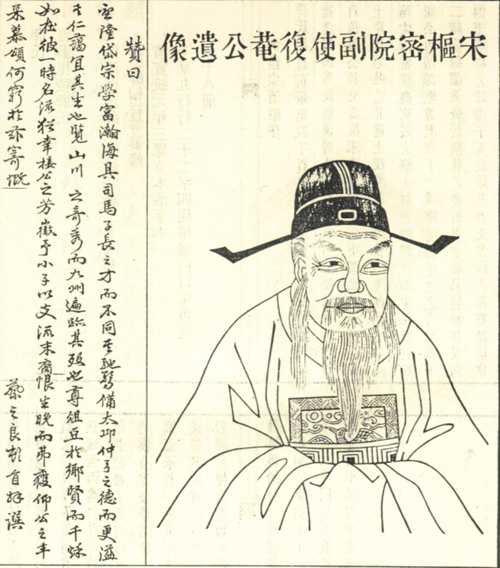 宋樞密院副使復菴公遺像
贊曰
望隆岱宗學富瀚海具司馬子長之才而不同其馳騖備太邱仲弓之德而更溢
其仁藹宜其生也覽山川之奇秀而九州遍臨其歿也尊俎豆於鄉賢而千秋
如在彼一時名流猶幸挹公之芳徽予小子以支流末裔恨生晚而弗獲仰公之丰
采慕頌何窮於茲寄慨
之良 首拜譔